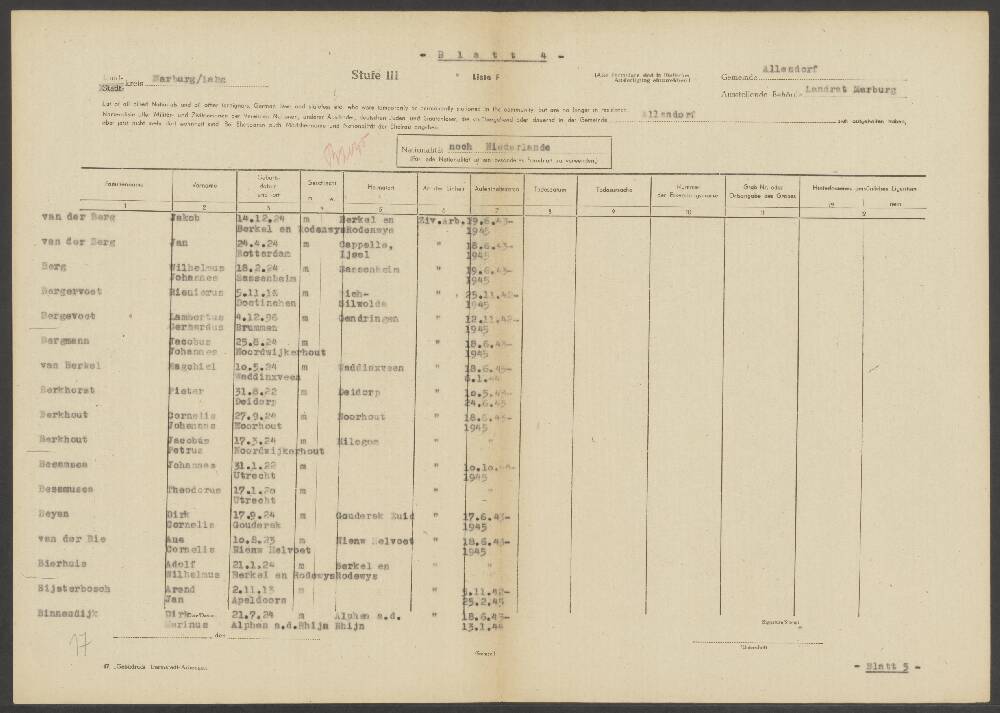 - B l a t t 4 -
Land-
Stadt- kreis Marburg/Lahn
Stufe III
Liste F
Gemeinde Allendorf
Ausstellende Behörde Landrat Marburg
List of all allied Nationals and of other foreigners, German Jews and stateless etc. who were temporarily or permanently stationed in the community, but are no longer in residence.
Namensliste aller Militär- und Zivilpersonen der Vereinten Nationen, anderer Ausländer, deutschen Juden und Staatenloser, die vorübergehend oder dauernd in der Gemeinde Allendorf sich aufgehalten haben,
aber jetzt nicht mehr dort wohnhaft sind. Bei Ehepaaren auch Mädchenname und Nationalität der Ehefrau angeben.
Nationalität noch Niederlande
(Für jede Nationalität ist ein besonderes Formblatt zu verwenden)
Familienname Vorname Geburts-datum und -ort Geschlecht m w. Heimatort Art der Arbeit Aufenthaltsdauer Todesdatum Todesursache Nummer der Erkennungsmarke Grab Nr. oder Ortsangabe des Grabes Hinterlassenes persönliches Eigentum ja nein
1 2 3 4 5 6 7 8 9 10 11 12
van der Berg Jakob 14.12.24 m Berkel en Ziv.Arb. 19.6.43-
Berkel en Rodenwys Rodenwys 1945
van der Berg Jan 24.4.24 m Cappelle, " 18.6.43-
Rotterdam Ijsel 1945
Berg Wilhelmus 18.2.24 m Sassenheim " 19.6.43-
Johannes Sassenheim 1945
Bergervoet Rienierus 5.11.16 m " 25.11.42-
Doetinchen Silwolde 1945
Bergevoet Lambertus 4.12.96 m Gendringen " 12.11.42-
Gerhardus Brummen 1945
Bergmann Jacobus 25.8.24 m " 18.6.43-
Johannes Noordwijkerhout 1945
van Berkel Magchiel 10.5.24 m Waddinxveen " 18.6.43-
Waddinxveen 6.1.44
Berkhorst Pieter 31.8.22 m Deidorp " 10.5.43-
Deidorp 24.6.43
Berkhout Cornelis 27.9.24 m Noorhout " 18.6.43-
Johannes Noorhout 1945
Berkhout Jacobus 17.3.24 m Hilegom " "
Petrus Noordwijkerhout
Bessmusea Johannes 31.1.22 m " 10.10.44-
Utrecht 1945
Bessmusea Theodorus 17.1.20 m " "
Utrecht
Beyen Dirk 17.9.24 m Gouderak Zuid " 17.6.43-
Cornelis Gouderak 1945
van der Bie Aue 10.8.23 m Nienw Helvoet " 18.6.43-
Cornelis Nienw Helvoet 1945
Bierhuis Adolf 21.1.24 m Berkel en " "
Wilhelmus Berkel en Rodewys Rodewys
Bijsterbosch Arend 2.11.13 m " 5.11.42-
Jan Apeldoorn 25.2.45
Binnendijk Dirk 21.7.24 m Alphen a.d. " 18.6.43-
Marinus Alphen a.d.Rhijn Rhijn 13.1.44
17
, den
Unterschrift
- Blatt 5 -